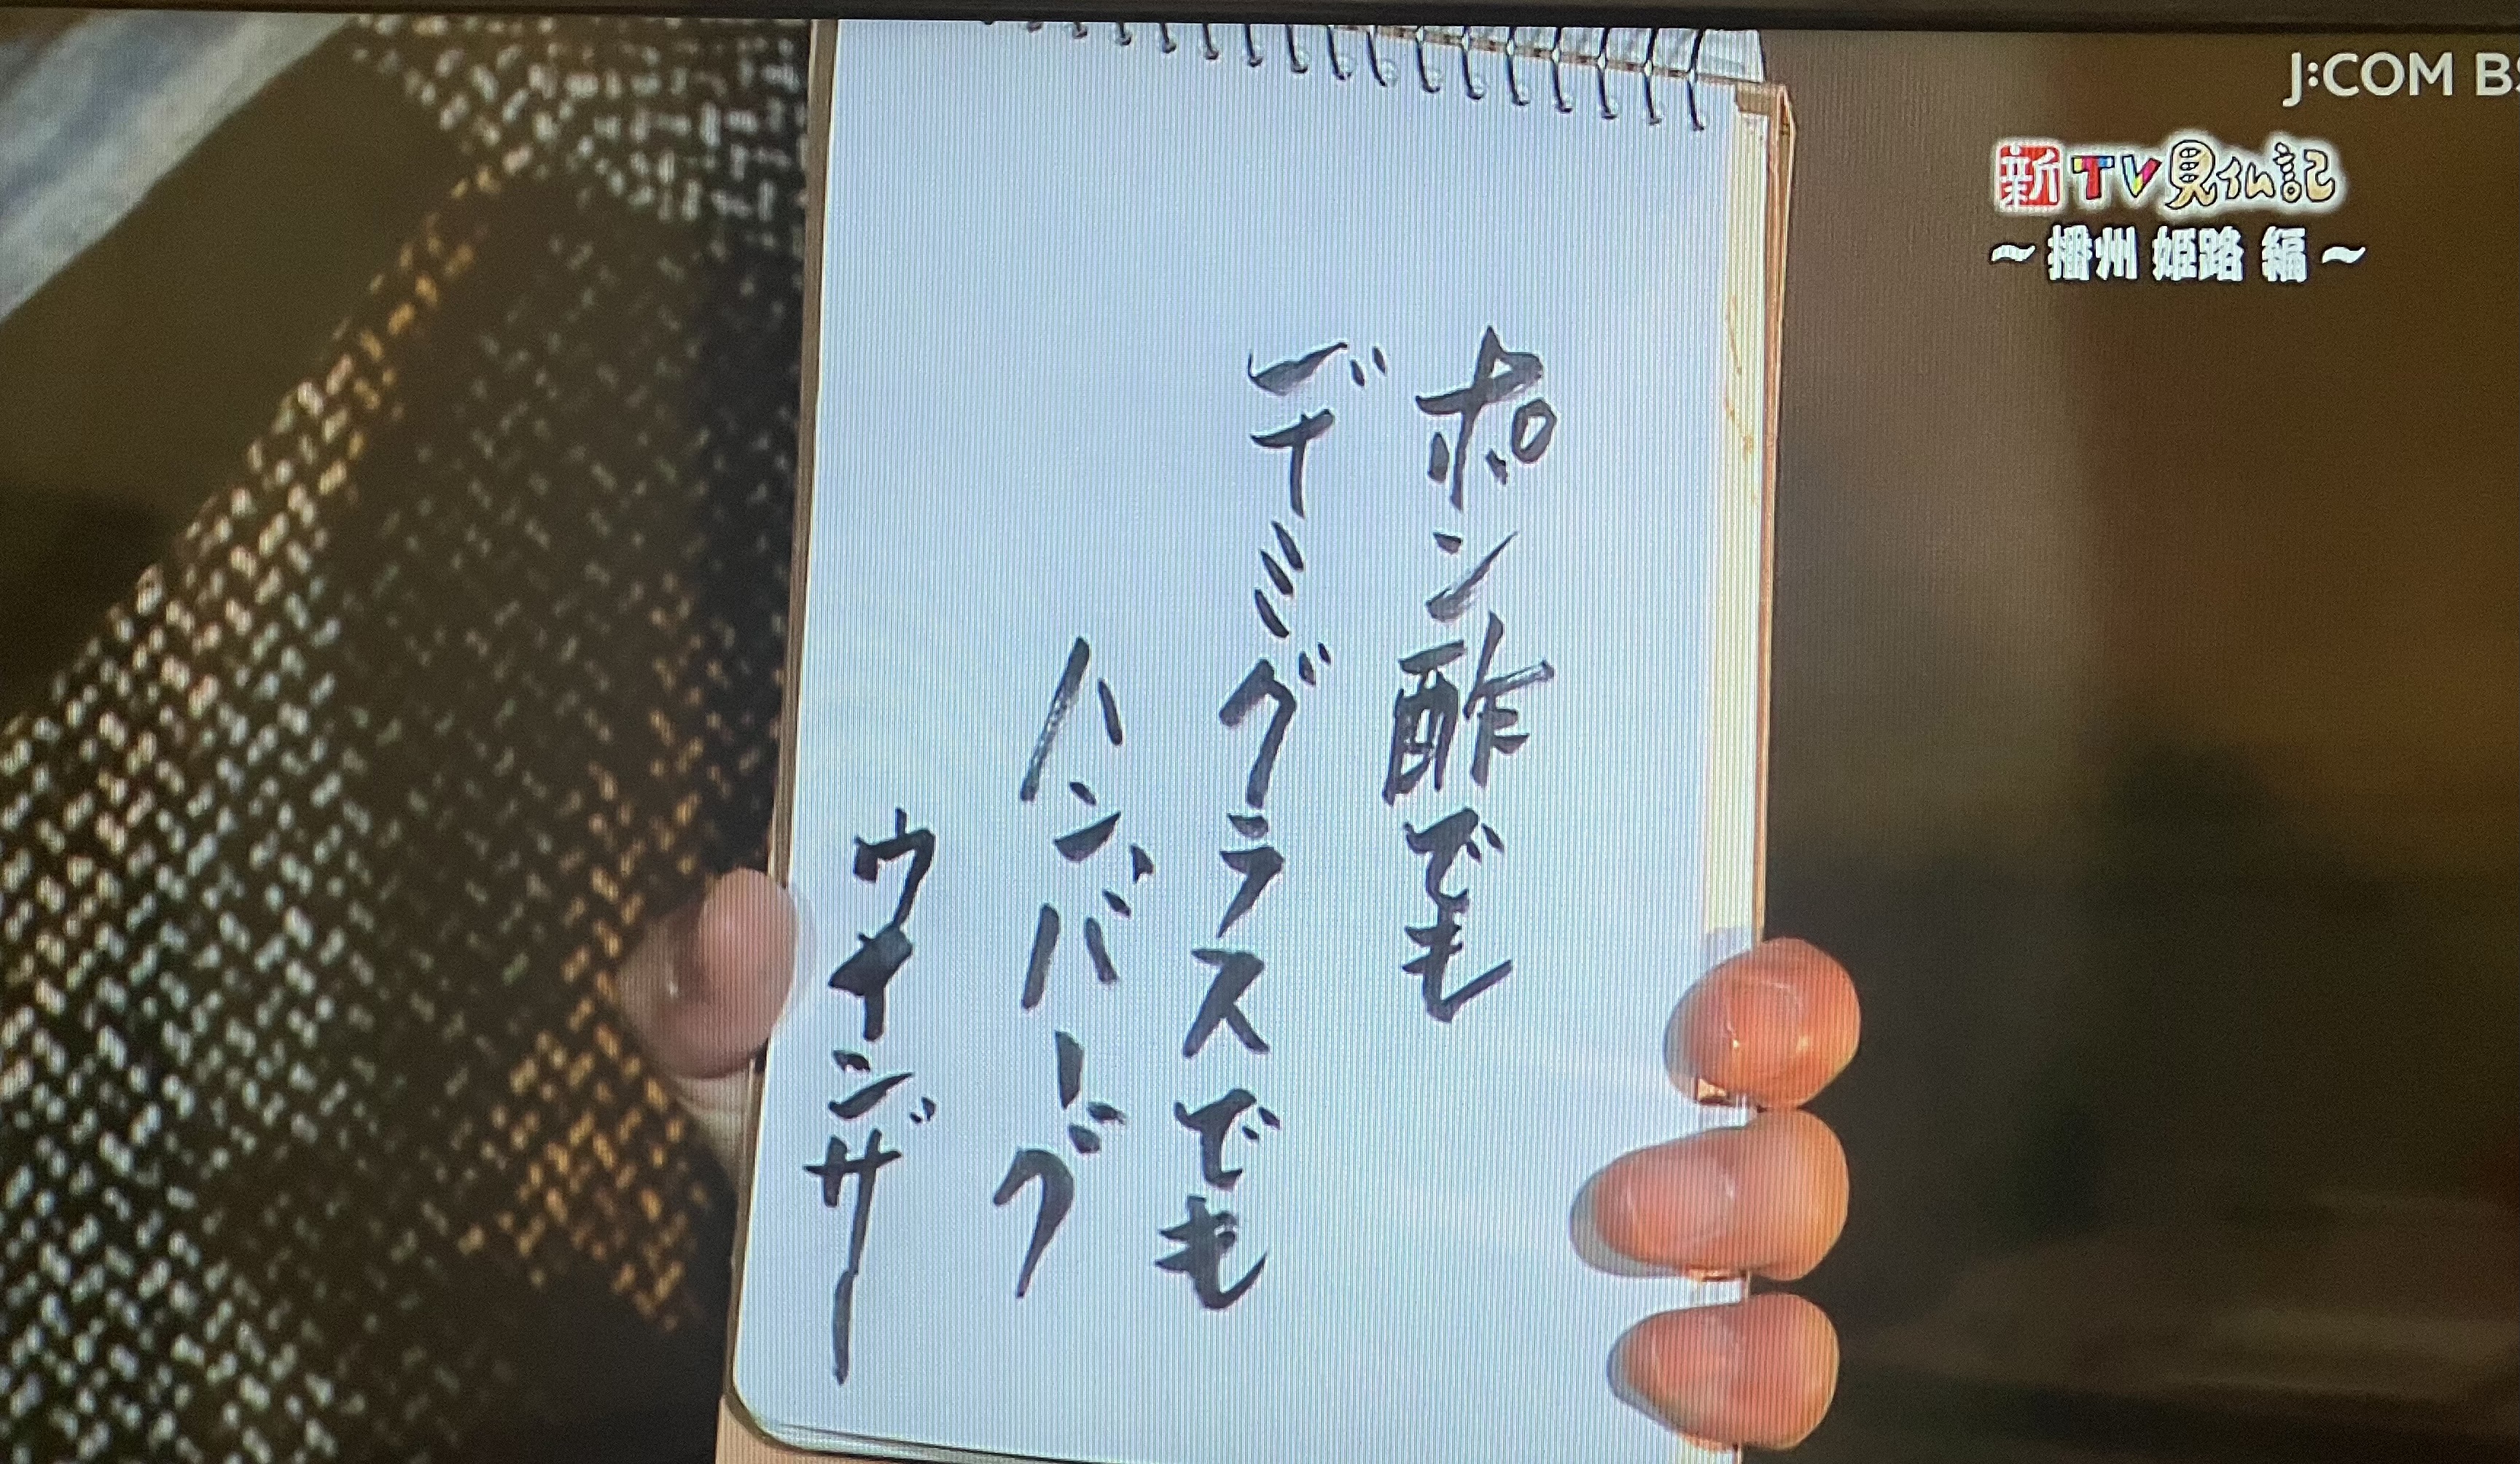 J:COM BS
新TV見仏記
～播州 姫路 編～
ポン酢でも
デミグラスでも
ハンバーグ
ウインザー